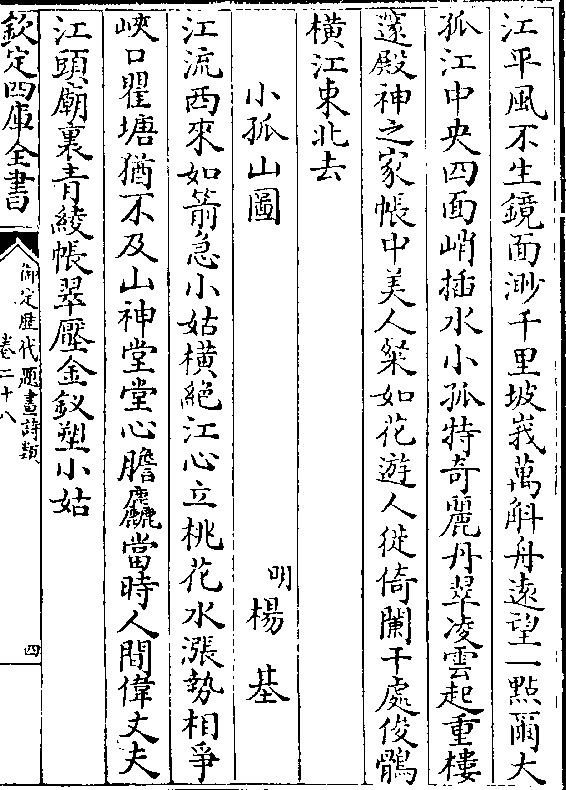 江平風不生鏡面渺千里坡峩萬斛舟遠望一點爾大
孤江中央四面峭插水小孤特奇麗丹翠凌雲起重樓
邃殿神之家帳中美人粲如花遊人徙倚闌干處俊鶻
橫江東北去
小孤山圖
明楊基
江流西來如箭急小姑橫絕江心立桃花水漲勢相爭
峽口瞿塘猶不及山神堂堂心膽麤當時人間偉丈夫
江頭廟裏青綾帳翠壓金釵塑小姑
欽定四庫全書
御定歷代題畫詩類
卷二十八
四